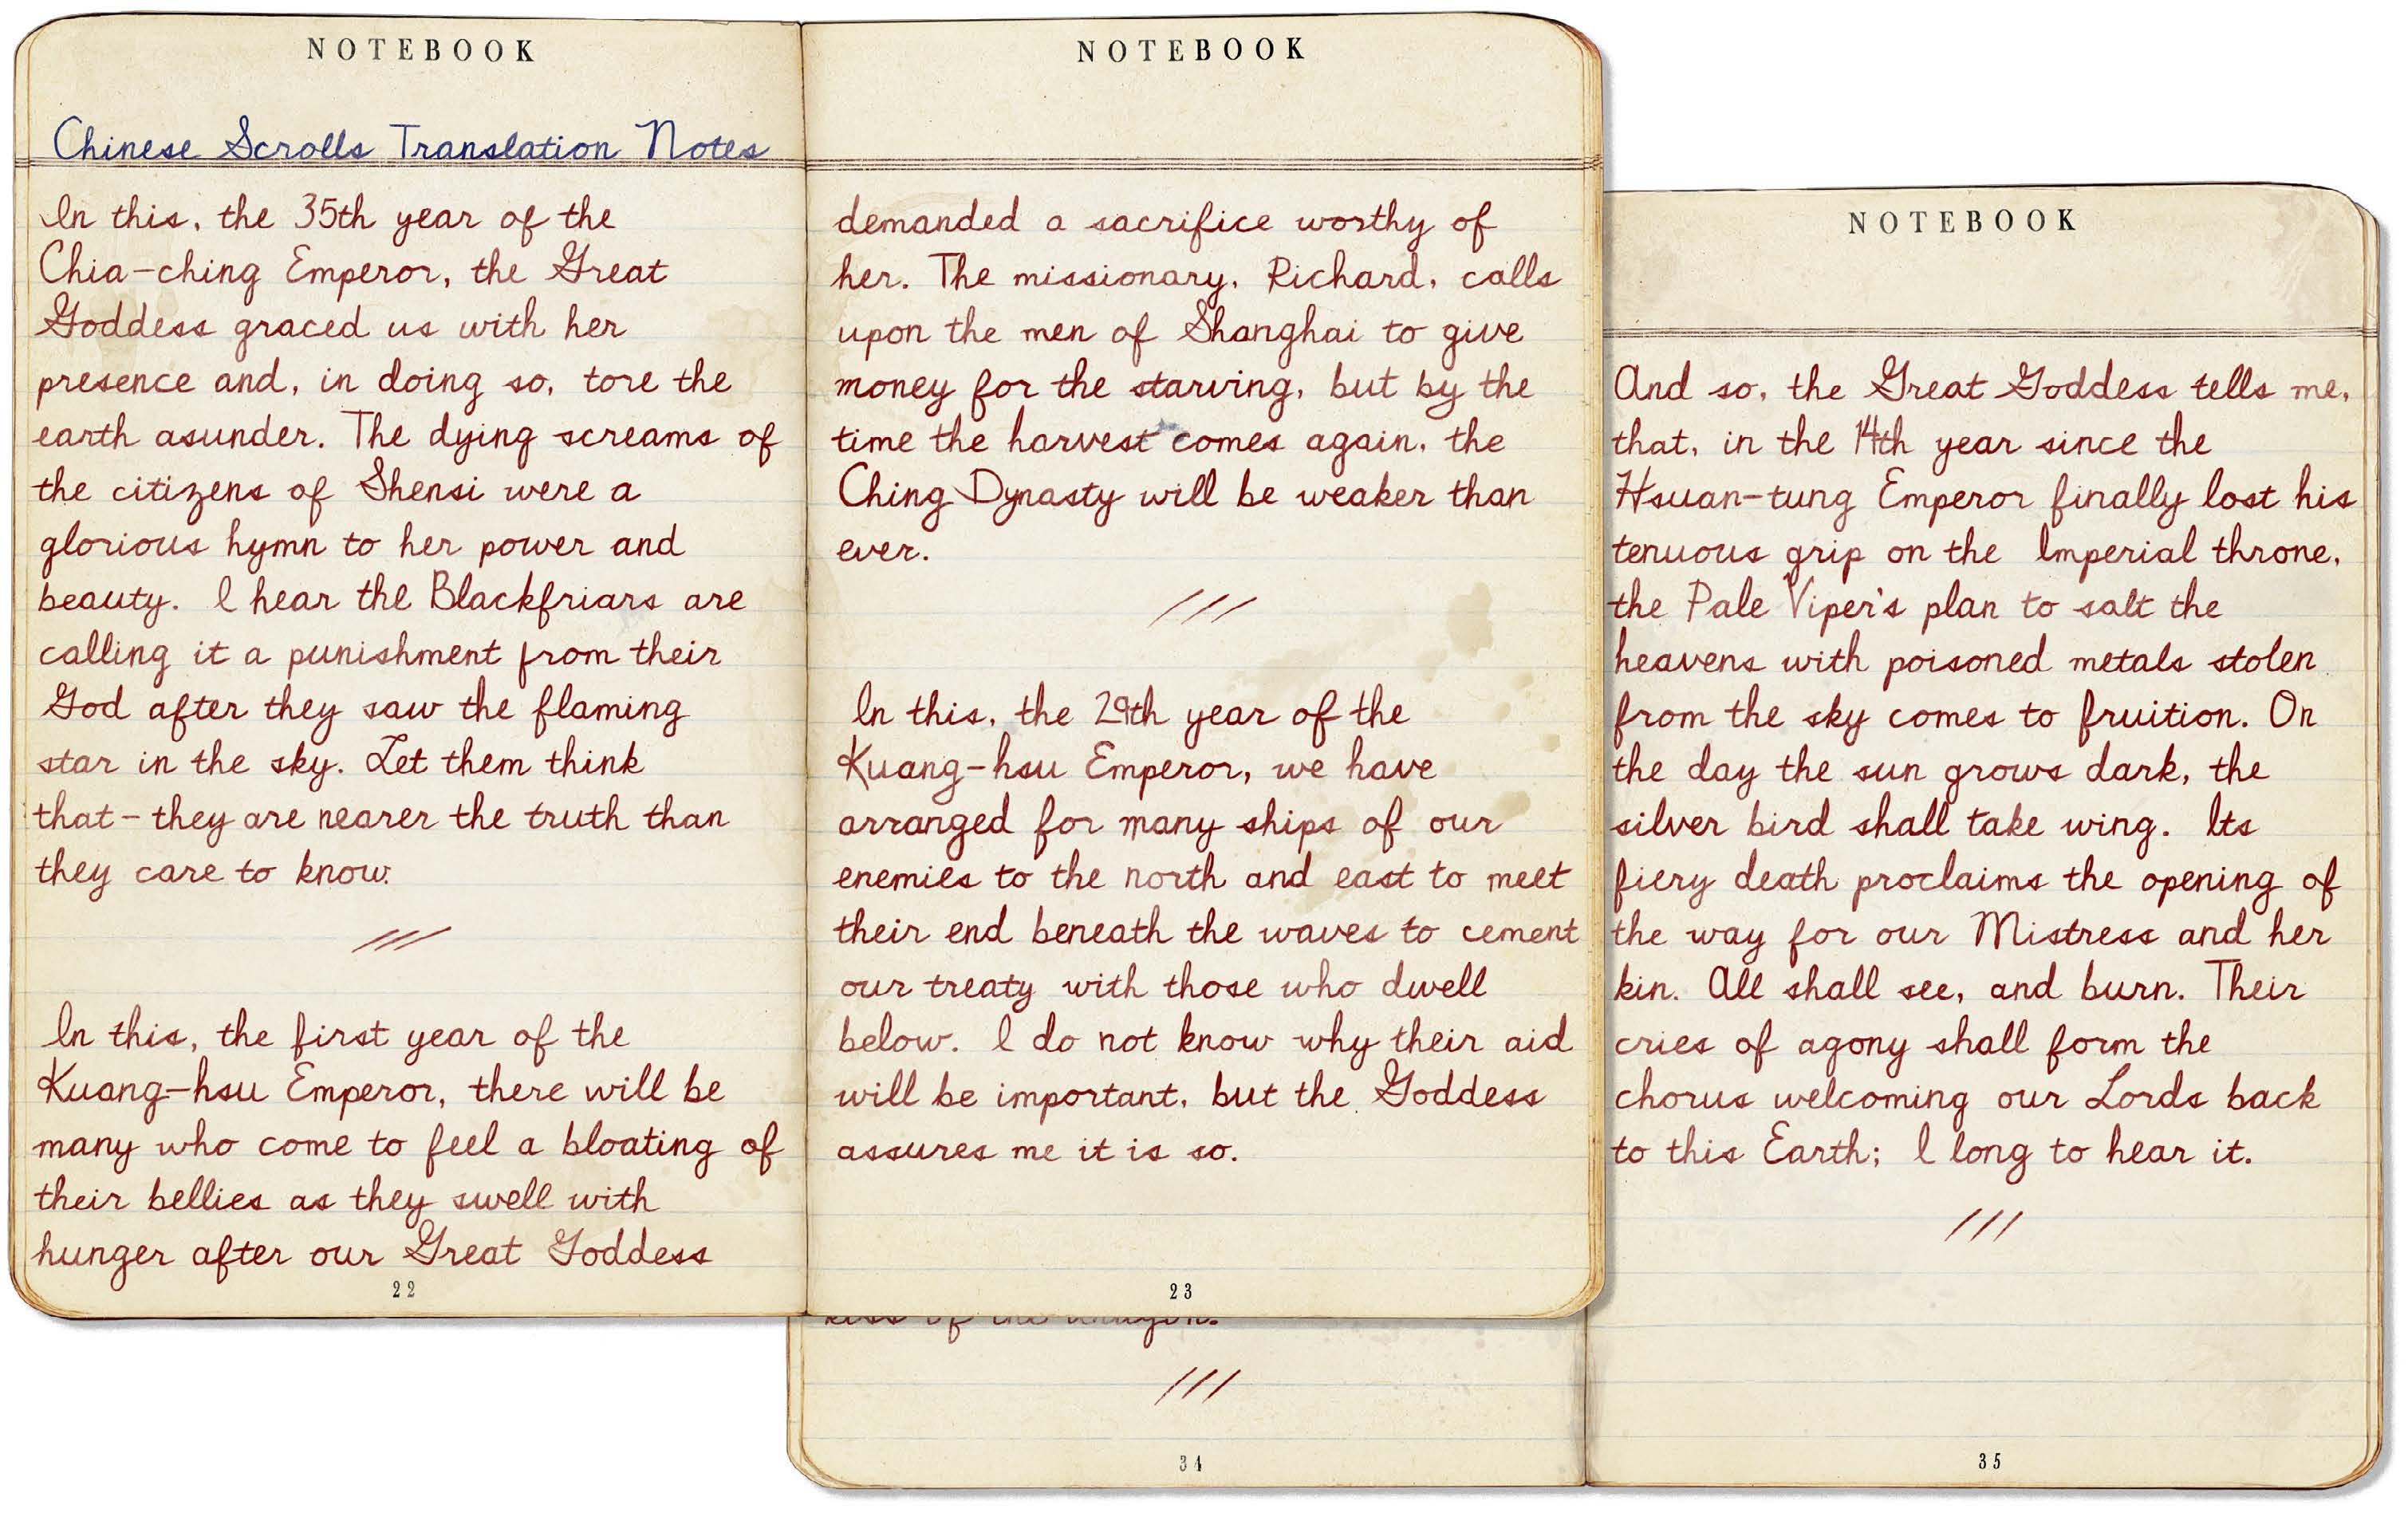 NOTEBOOK
Chinese Scrolls Translation Notes
In this, the 35th year of the
Chia-ching Emperor, the Great
Goddess graced us with her
presence and, in doing so, tore the
earth asunder. The dying screams of
the citizens of Shensi were a
glorious hymn to her power and
beauty. I hear the Blackfriars are
calling it a punishment from their
God after they saw the flaming
star in the sky. Let them think
that - they are nearer the truth than
they care to know.
///
In this, the first year of the
Kuang-hsu Emperor, there will be
many who come to feel a bloating of
their bellies as they swell with
hunger after our Great Goddess
22
NOTEBOOK
demanded a sacrifice worthy of
her. The missionary, Richard, calls
upon the men of Shanghai to give
money for the starving, but by the
time the harvest comes again, the
Ching Dynasty will be weaker than
ever.
///
In this, the 29th year of the
Kuang-hsu Emperor, we have
arranged for many ships of our
enemies to the north and east to meet
their end beneath the waves to cement
our treaty with those who dwell
below. I do not know why their aid
will be important, but the Goddess
assures me it is so.
23
of the
///
34
NOTEBOOK
And so, the Great Goddess tells me,
that, in the 14th year since the
Hsuan-tung Emperor finally lost his
tenuous grip on the Imperial throne,
the Pale Viper's plan to salt the
heavens with poisoned metals stolen
from the sky comes to fruition. On
the day the sun grows dark, the
silver bird shall take wing. Its
fiery death proclaims the opening of
the way for our Mistress and her
kin. All shall see, and burn. Their
cries of agony shall form the
chorus welcoming our Lords back
to this Earth; I long to hear it.
///
35